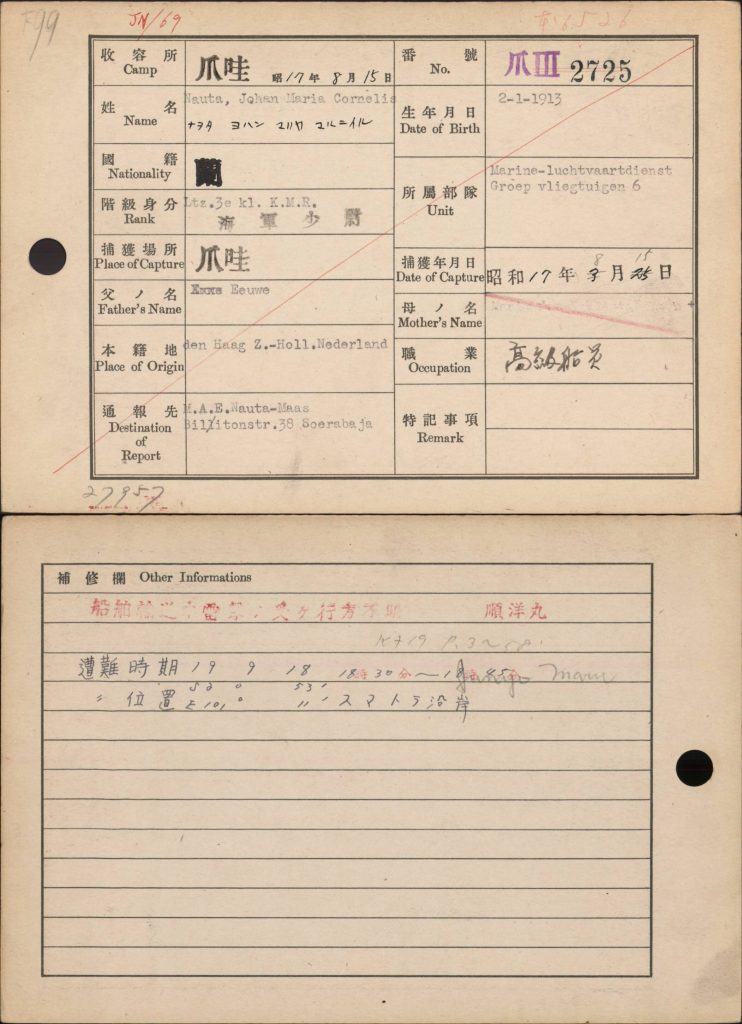 JN/69
收容所 Camp
爪哇 昭17年8月15日
番號 No.
爪III 2725
姓名 Name
Nauta, Johan Maria Cornelis
ナヲタ ヨハン マリヤ コルニイル
生年月日 Date of Birth
2-1-1913
國籍 Nationality
蘭
所屬部隊 Unit
Marine-luchtvaartdienst
Groep vliegtuigen 6
階級身分 Rank
Ltz.3e kl. K.M.R.
海軍少尉
捕獲場所 Place of Capture
爪哇
捕獲年月日 Date of Capture
8 15
昭和17年3月25日
父ノ名 Father's Name
Eeuwe
母ノ名 Mother's Name
本籍地 Place of Origin
den Haag Z.-Holl.Nederland
職業 Occupation
高級船員
通報先 Destination of Report
M.A.E.Nauta-Maas
Billitonstr.38 Soerabaja
特記事項 Remark
27957
補修欄 Other Informations
船舶輸送中雷撃ヲ受ケ行方不明 順洋丸
遭難時期 19 9 18 18時30分〜18時
Junyo Maru
〃 位置 S2° 53′
E101° 〃′ スマトラ沿岸